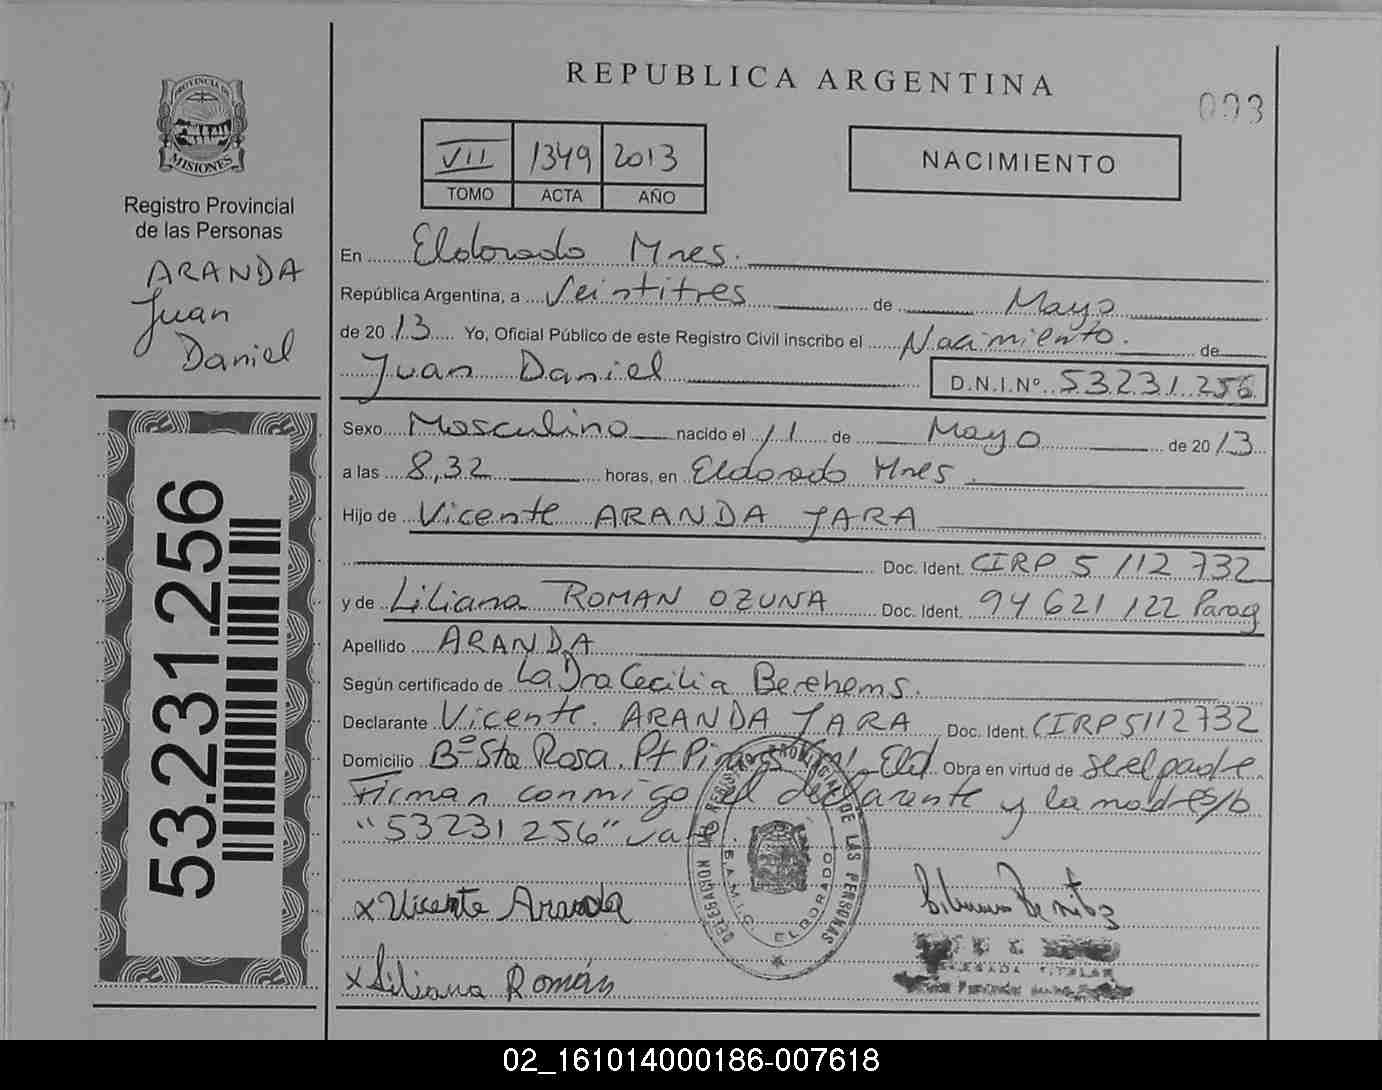 REPUBLICA ARGENTINA
093
PROVINCIA DE
MISIONES
Registro Provincial
de las Personas
ARANDA
Juan
Daniel
53.231.256
VII 1349 2013
TOMO ACTA AÑO
NACIMIENTO
En Eldorado Mnes.
República Argentina, a Veintitres de Mayo
de 2013 Yo, Oficial Público de este Registro Civil inscribo el Nacimiento. de
Juan Daniel D.N.I.Nº 53231256
Sexo Masculino nacido el 11 de Mayo de 2013
a las 8,32 horas, en Eldorado Mnes.
Hijo de Vicente ARANDA JARA
Doc. Ident. CIRP 5 112 732
y de Liliana ROMAN OZUNA Doc. Ident. 94 621 122 Parag
Apellido ARANDA
Según certificado de La Dra Cecilia
Declarante Vicente. ARANDA JARA Doc. Ident. CIRP5112732
Domicilio Bº Sta Rosa. Pt Eld. Obra en virtud de ser el padre
Firman conmigo el declarante y la madre s/b
"53231256" vale
x Vicente Aranda
x Liliana Román
DELEGACION DEL REGISTRO PROVINCIAL DE LAS PERSONAS
S.A.M.I.C. ELDORADO
TITULAR
02_161014000186-007618